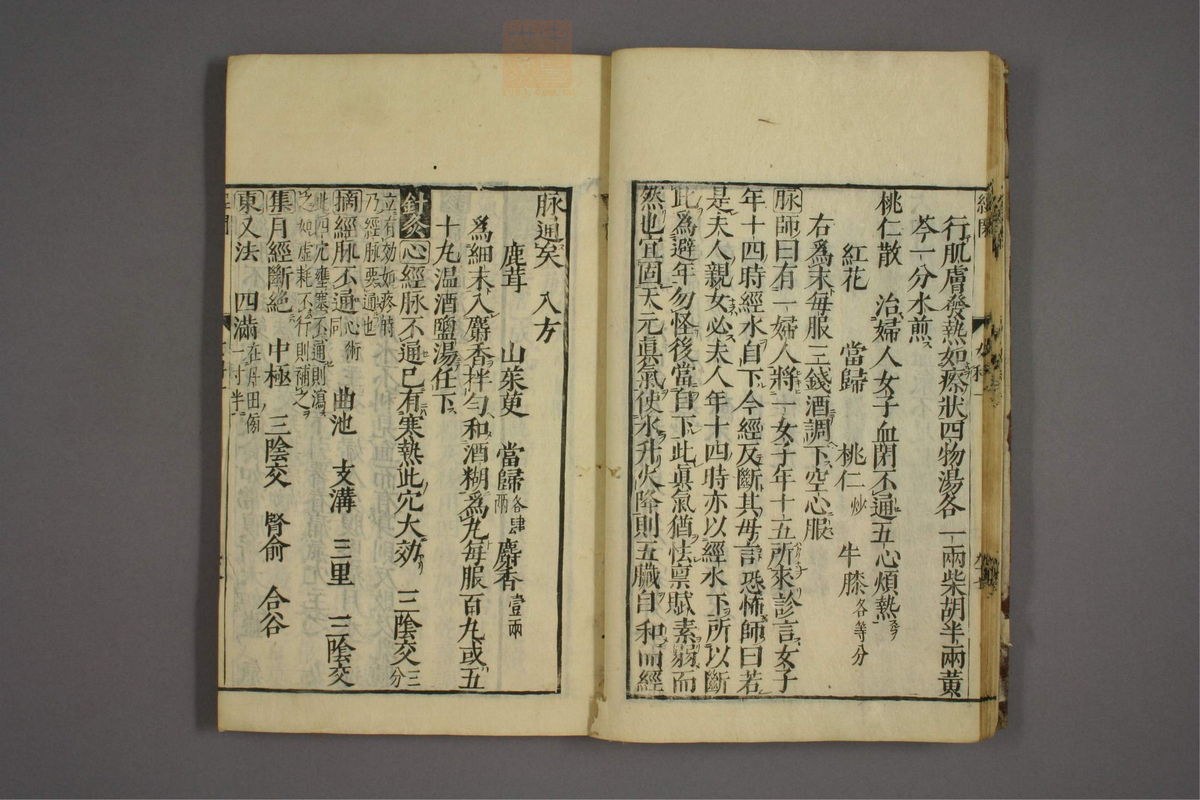 行肌膚發熱如疹狀四物湯各一兩柴胡半兩黃
芩一分水煎
桃仁散　治婦人女子血閉不通五心煩熱
紅花　當歸　桃仁炒　牛膝各等分
右爲末每服三錢酒調下空心服
脉師曰有一婦人將一女子年十五所來診言女子
年十四時經水自下今經反斷其母言恐怖師曰若
是夫人親女必夫人年十四時亦以經水下所以斷
此爲避年勿怪後當自下此眞氣猶怯禀賦素弱而
然也宜固天元眞氣使水升火降則五臟自和而經
脉通矣　入方
鹿茸　山茱萸　當歸各肆兩　麝香壹兩
爲細末入麝香拌勻和酒糊爲丸每服百丸或五
十丸温酒鹽湯任下
針灸心經脉不通已有寒熱此穴大効　三陰交三分
立有効如疼的
乃經脉要通也
摘經脉不通心術同　曲池　支溝　三里　三陰交
此四穴壅塞不通則瀉
之如虚耗不行則補之
集月經斷絶　中極　三陰交　腎俞　合谷
東又法　四滿在丹田傍一寸半